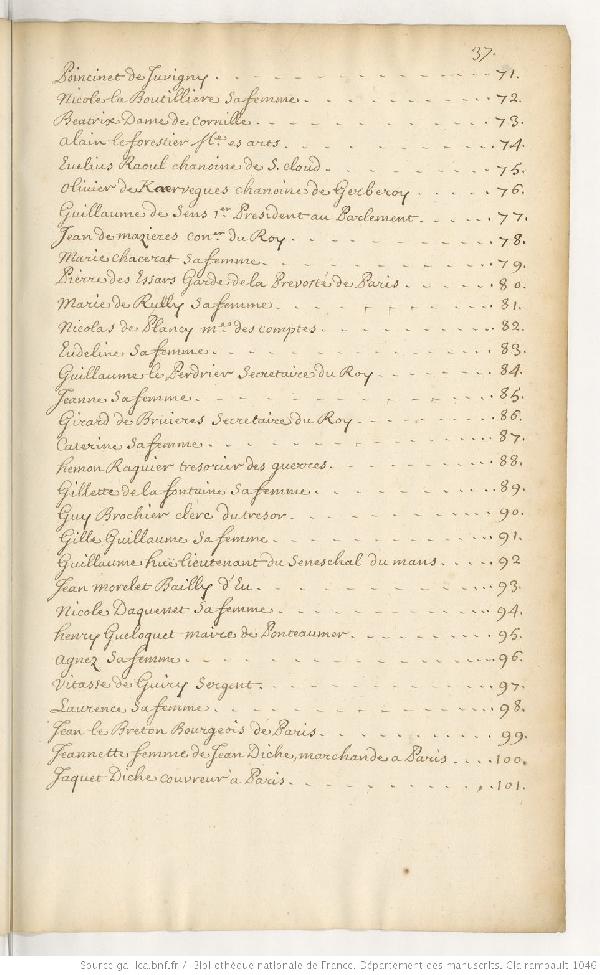 37.
Poincinet de Juvigny. 71.
Nicole la Boutilliere Sa femme. 72.
Beatrix Dame de Cornille. 73.
alain leforestier es arts. 74.
Evelius Raoul chanoine de S. cloud. 75.
Olivier de Kaervegues chanoine de Gerberoy. 76.
Guillaume de Sens 1er President au Parlement. 77.
Jean de mazieres coner du Roy. 78.
Marie chacerat Sa femme. 79.
Pierre des Essars Garde de la Prevosté de Paris. 80.
Marie de Rully Sa femme. 81.
Nicolas de Plancy me des comptes. 82.
Eudeline Sa femme. 83.
Guillaume le Perdrier Secretaire du Roy. 84.
Jeanne Sa femme. 85.
Girard de Bruieres Secretaire du Roy. 86.
Caterine Sa femme. 87.
hemon Raguier tresorier des guerres. 88.
Gillette de la fontaine Sa femme. 89.
Guy Brochier clerc du tresor. 90.
Gille Guillaume Sa femme. 91.
Guillaume huë lieutenant du Seneschal du mans. 92
Jean morelet Bailly d'Eu. 93.
Nicole Daquenet Sa femme. 94.
henry Gueloquet maire de Ponteaumer. 95.
agnez Sa femme. 96.
Vitasse de Guiry Sergent. 97.
Laurence Sa femme. 98.
Jean le Breton Bourgeois de Paris. 99.
Jeannette femme de Jean Diche, marchande a Paris. 100.
Jaquet Diche couvreur a Paris. 101.
Source gallica.bnf.fr / Bibliothèque nationale de France. Département des manuscrits. Clairambault 1046